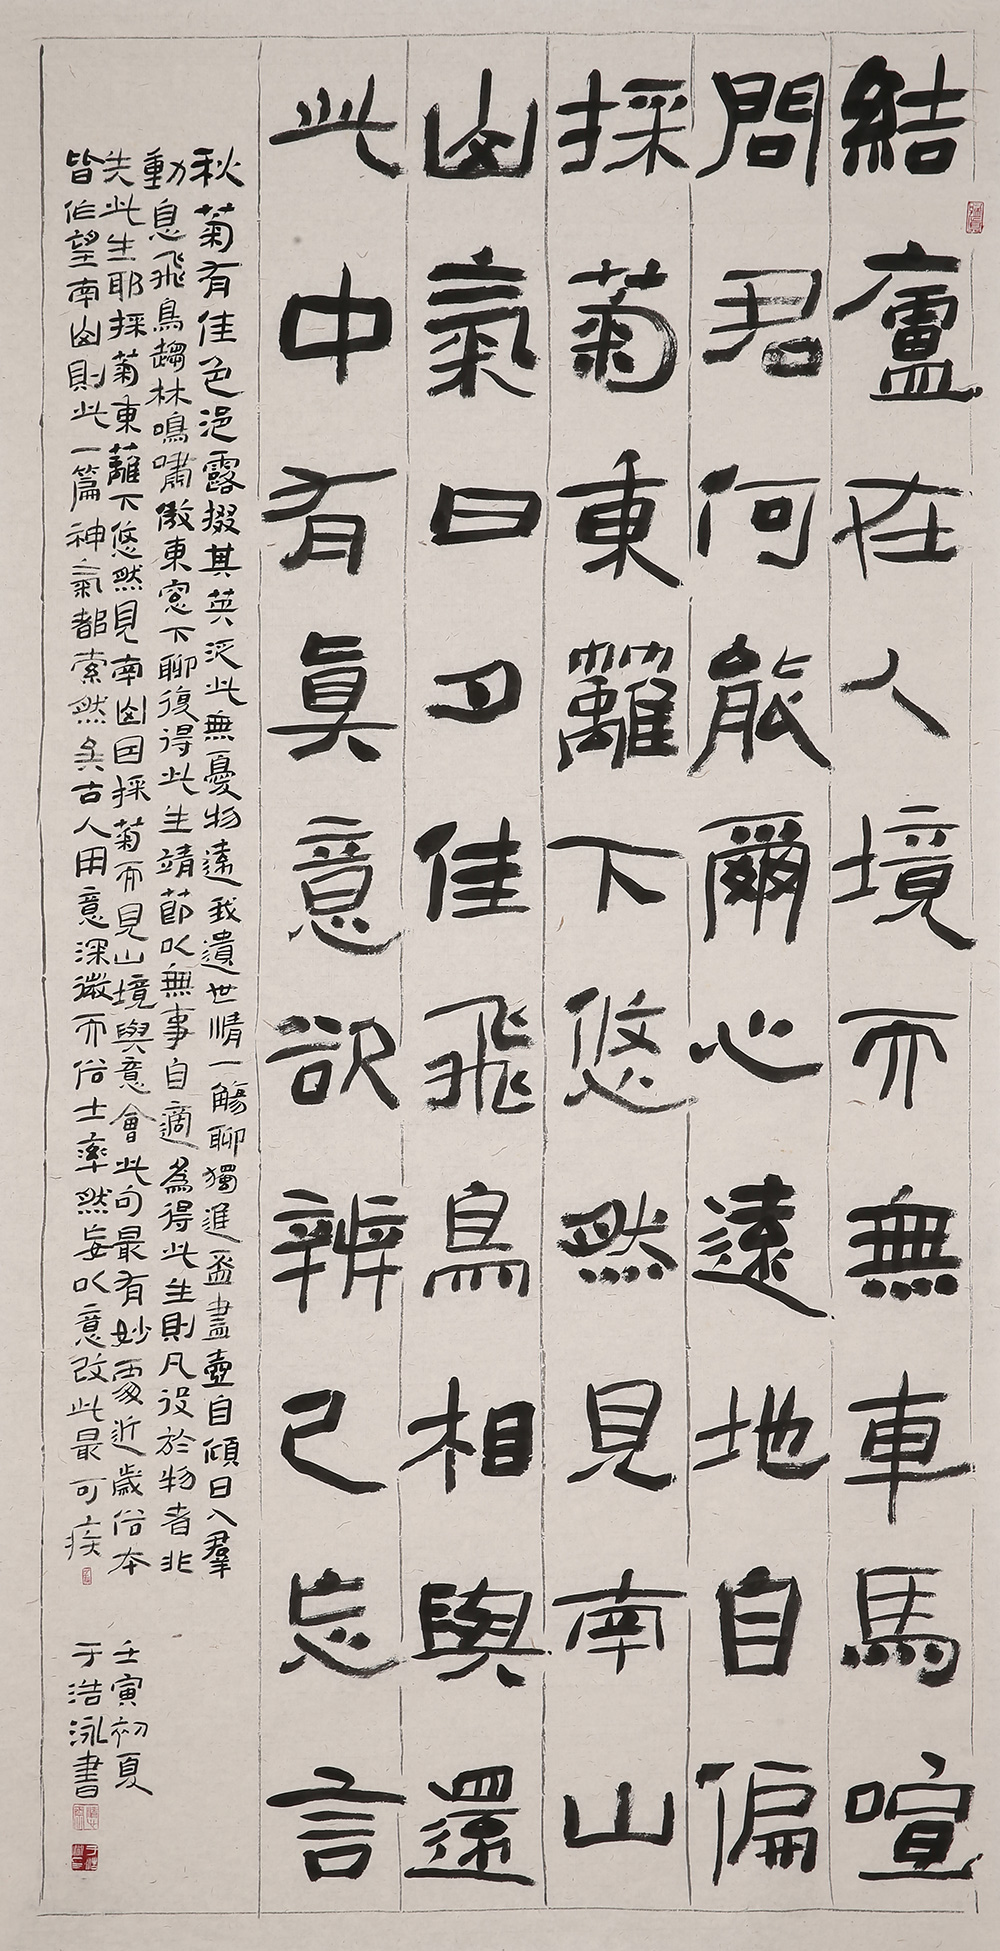 結廬在人境而無車馬喧
問君何能爾心遠地自偏
採菊東蘺下悠然見南山
山氣日夕佳飛鳥相與還
此中有眞意欲辨已忘言
秋菊有佳色浥露掇其英汎此無憂物遠我遺世情一觴聊獨進盃盡壺自傾日入羣
動息飛鳥趨林鳴嘯傲東窓下聊復得此生靖節以無事自適為得此生則凡役於物者非
失此生耶採菊東蘺下悠然見南山因採菊而見山境與意會此句最有妙處近歲俗本
皆作望南山則此一篇神氣都索然矣古人用意深微而俗士率然妄以意改此最可疾
壬寅初夏
于浩泳書